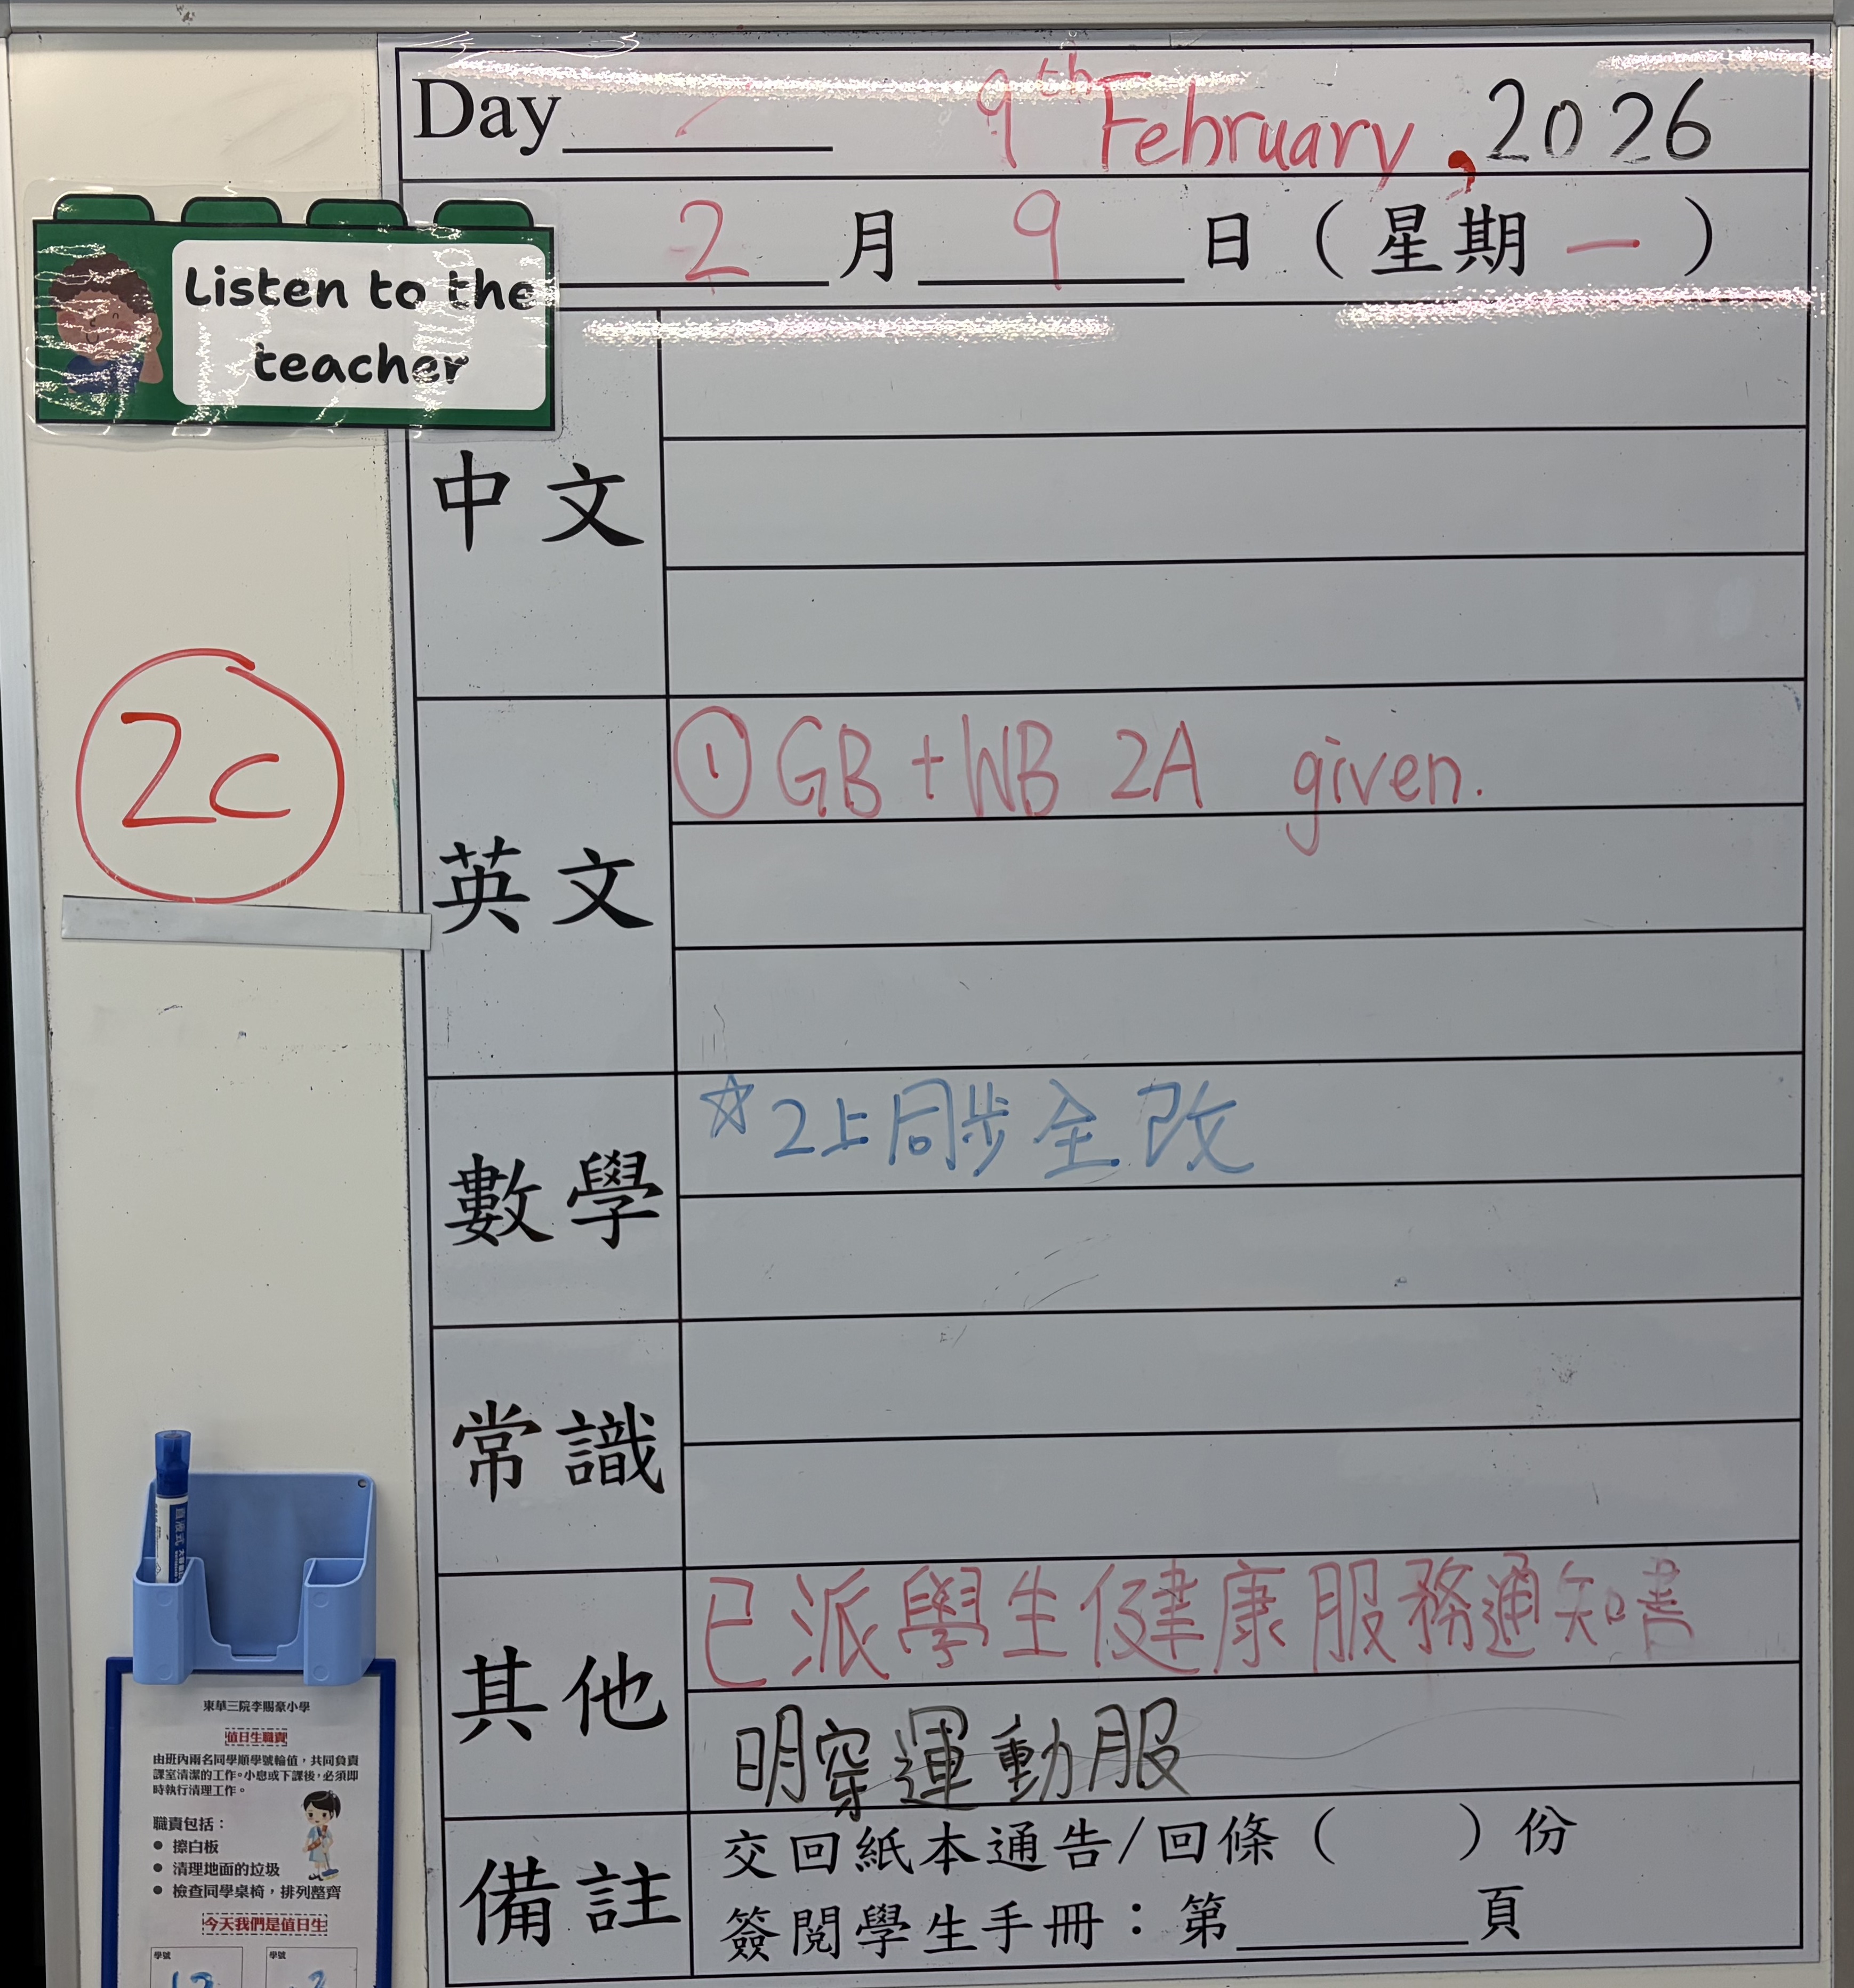 Day 9th February, 2026
2月9日（星期一）
Listen to the
teacher
中文
2C
英文
① GB + WB 2A given.
數學
☆2上同步全改
常識
其他
已派學生健康服務通知書
明穿運動服
備註
交回紙本通告/回條（　　）份
簽閱學生手冊：第______頁
直液式
東華三院李賜豪小學
值日生職責
由班內兩名同學順學號輪值，共同負責
課室清潔的工作。小息或下課後，必須即
時執行清理工作。
職責包括：
● 擦白板
● 清理地面的垃圾
● 檢查同學桌椅，排列整齊
今天我們是值日生
學號 學號